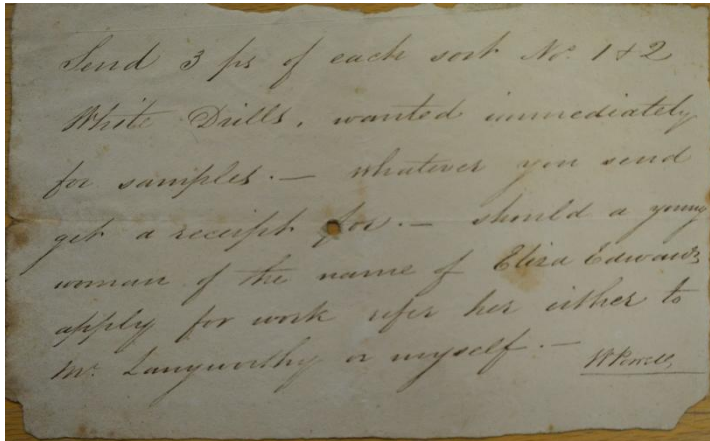 Send 3 ps of each sort No. 1 & 2
White Drills, wanted immediately
for samples. — Whatever you send
get a receipt for. — should a young
woman of the name of Eliza Edwards
apply for work refer her either to
Mr. Langworthy or myself. —
W Powell